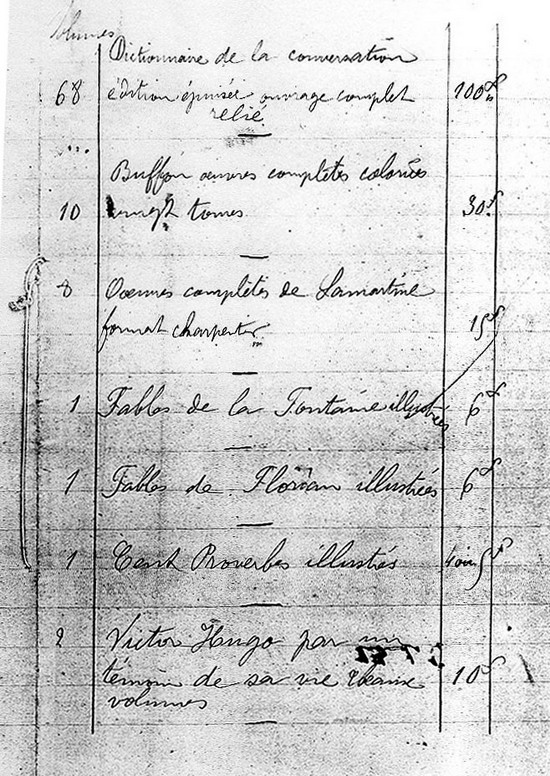 Volumes
Dictionnaire de la conversation
68 édition épuisée ouvrage complet 100f
relié
Buffon œuvres complètes coloriées
10 tomes 30f
8 Oeuvres complètes de Lamartine
format charpentier 15f
1 Fables de la Fontaine illustrées 6f
1 Fables de Florian illustrées 6f
1 Cent Proverbes illustrés 4 ou 5f
2 Victor Hugo par un
témoin de sa vie 2 beaux 10f
volumes